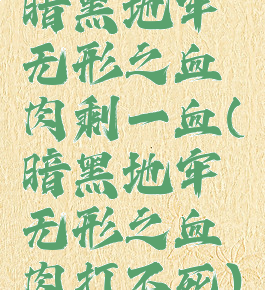 暗黑地牢
无形之血
肉剩一血(
暗黑地牢
无形之血
肉打不死)